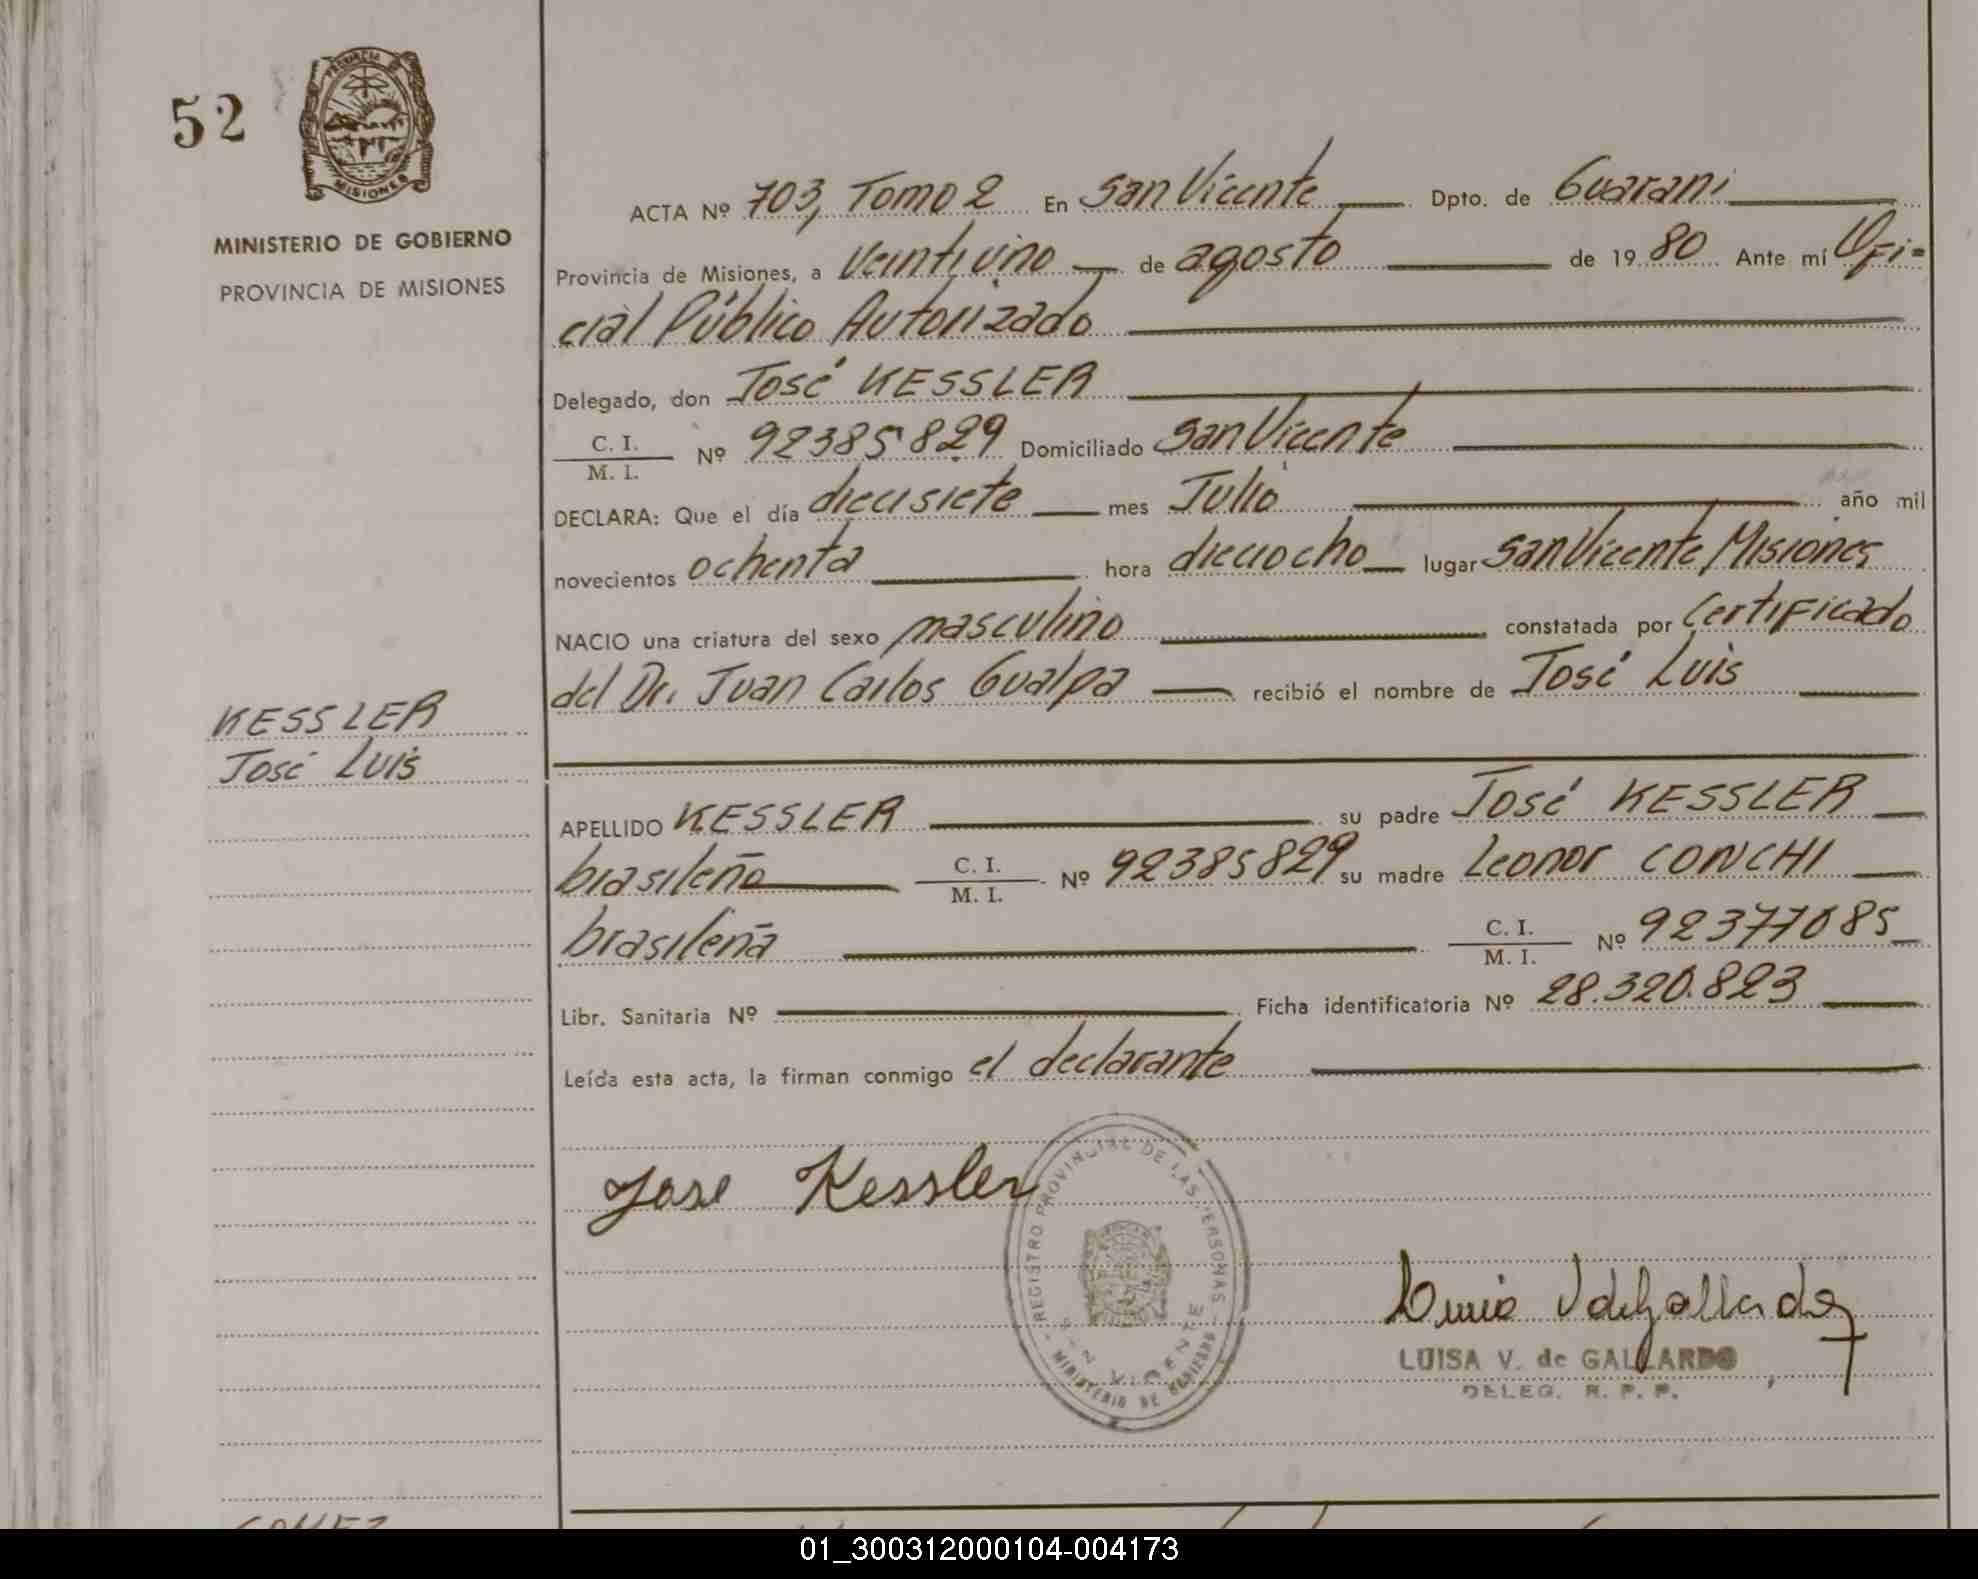 52
PROVINCIA DE
MISIONES
MINISTERIO DE GOBIERNO
PROVINCIA DE MISIONES
ACTA Nº 703, Tomo 2 En San Vicente Dpto. de Guarani
Provincia de Misiones, a veintiuno de agosto de 19 80 Ante mí Ofi-
cial Público Autorizado
Delegado, don José KESSLER
C. I. / M. I. Nº 92385829 Domiciliado San Vicente
DECLARA: Que el día diecisiete mes Julio año mil
novecientos ochenta hora dieciocho lugar San Vicente, Misiones
NACIO una criatura del sexo masculino constatada por Certificado
del Dr. Juan Carlos Gualpa recibió el nombre de José Luis
KESSLER
José Luis
APELLIDO KESSLER su padre José KESSLER
brasileño C. I. / M. I. Nº 92385829 su madre Leonor CONCHI
brasileña C. I. / M. I. Nº 92377085
Libr. Sanitaria Nº Ficha identificatoria Nº 28.320.823
Leída esta acta, la firman conmigo el declarante
Jose Kessler
REGISTRO PROVINCIAL DE LAS PERSONAS
SAN VICENTE
MINISTERIO DE GOBIERNO
Luisa V de Gallardo
LUISA V. de GALLARDO
DELEG. R. P. P.
GOMEZ
01_300312000104-004173